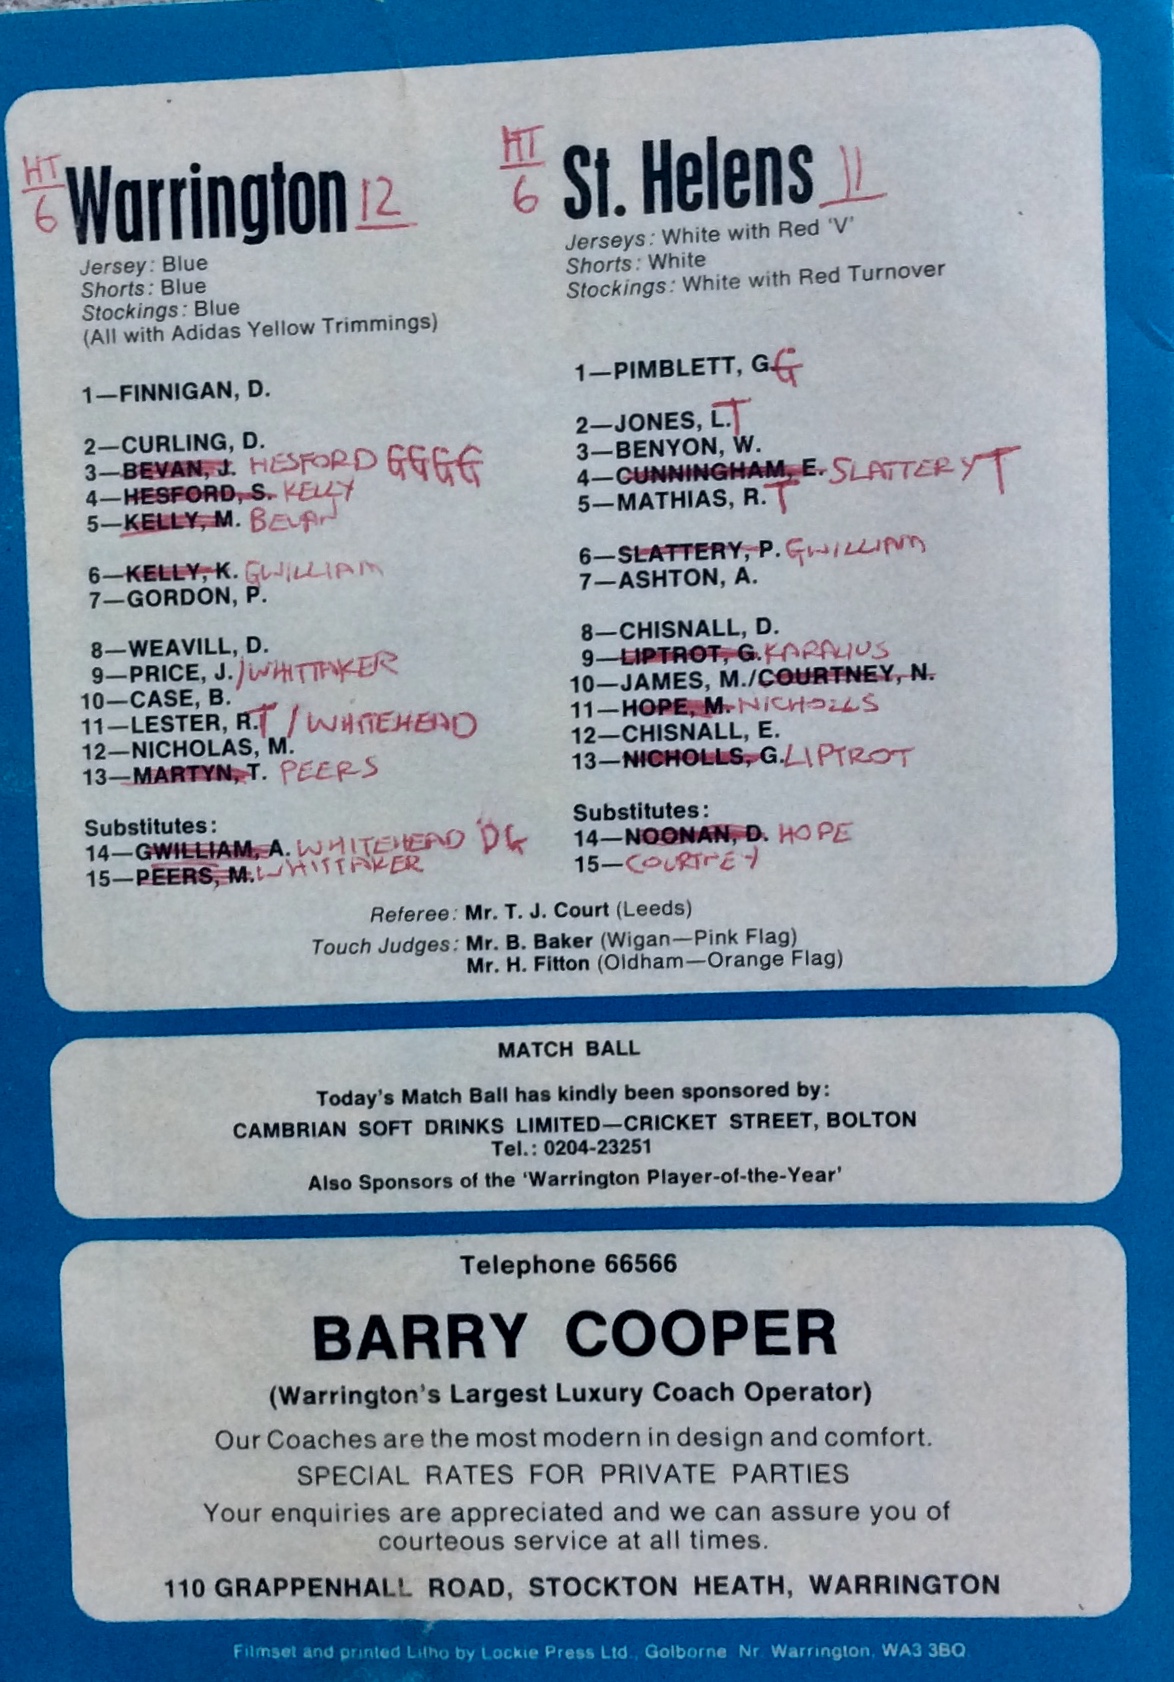 HT
6
Warrington 12
Jersey: Blue
Shorts: Blue
Stockings: Blue
(All with Adidas Yellow Trimmings)
1—FINNIGAN, D.
2—CURLING, D.
3—BEVAN, J. HESFORD GGGG
4—HESFORD, S. KELLY
5—KELLY, M. BEVAN
6—KELLY, K. GWILLIAM
7—GORDON, P.
8—WEAVILL, D.
9—PRICE, J. / WHITTAKER
10—CASE, B.
11—LESTER, R. T / WHITEHEAD
12—NICHOLAS, M.
13—MARTYN, T. PEERS
Substitutes:
14—GWILLIAM, A. WHITEHEAD DG
15—PEERS, M. WHITTAKER
HT
6
St. Helens 11
Jerseys: White with Red 'V'
Shorts: White
Stockings: White with Red Turnover
1—PIMBLETT, G. G
2—JONES, L. T
3—BENYON, W.
4—CUNNINGHAM, E. SLATTERY T
5—MATHIAS, R. T
6—SLATTERY, P. GWILLIAM
7—ASHTON, A.
8—CHISNALL, D.
9—LIPTROT, G. KARALIUS
10—JAMES, M./COURTNEY, N.
11—HOPE, M. NICHOLLS
12—CHISNALL, E.
13—NICHOLLS, G. LIPTROT
Substitutes:
14—NOONAN, D. HOPE
15—COURTNEY
Referee: Mr. T. J. Court (Leeds)
Touch Judges: Mr. B. Baker (Wigan—Pink Flag)
Mr. H. Fitton (Oldham—Orange Flag)
MATCH BALL
Today's Match Ball has kindly been sponsored by:
CAMBRIAN SOFT DRINKS LIMITED—CRICKET STREET, BOLTON
Tel.: 0204-23251
Also Sponsors of the 'Warrington Player-of-the-Year'
Telephone 66566
BARRY COOPER
(Warrington's Largest Luxury Coach Operator)
Our Coaches are the most modern in design and comfort.
SPECIAL RATES FOR PRIVATE PARTIES
Your enquiries are appreciated and we can assure you of
courteous service at all times.
110 GRAPPENHALL ROAD, STOCKTON HEATH, WARRINGTON
Filmset and printed Litho by Lockie Press Ltd., Golborne Nr. Warrington, WA3 3BQ